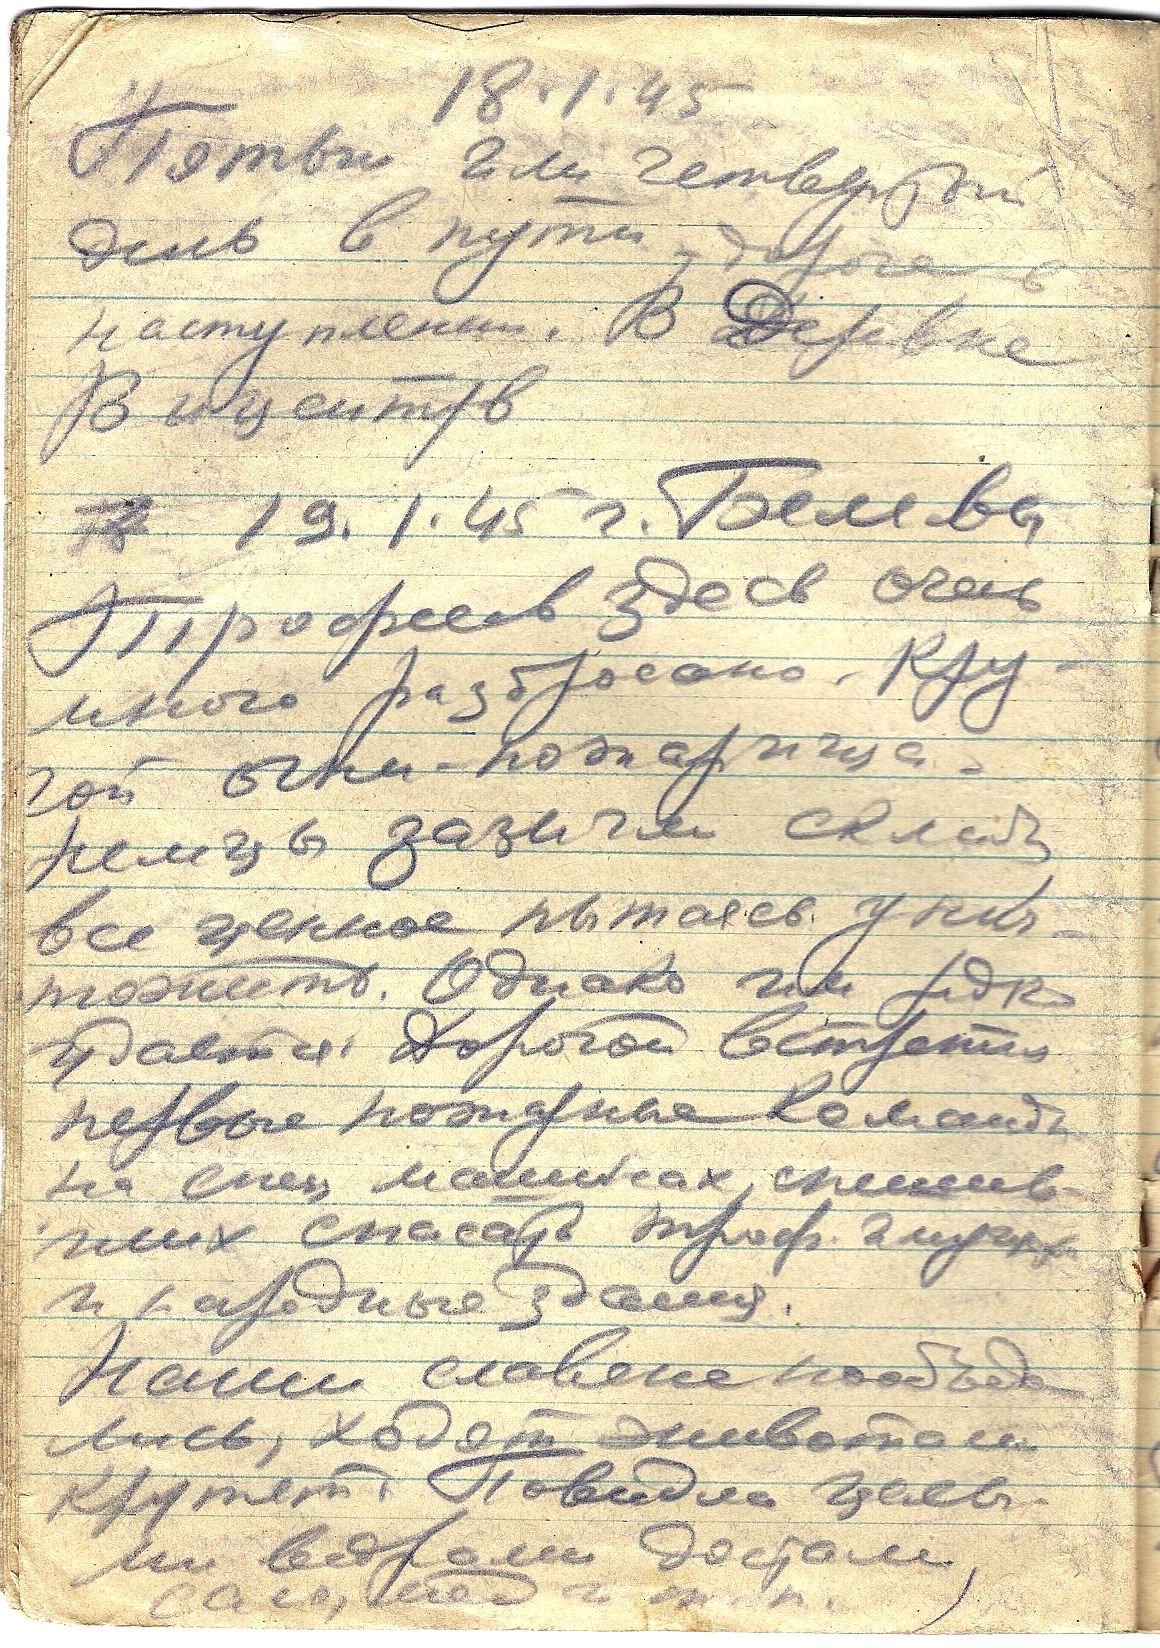 18.1.45
Пятый или четвертый
день в пути, дороге в
наступлении. В Деревне
Вицентув
19.1.45 г. Бемвы
Трофеев здесь очень
много разбросано. Кру-
гой огни-пожарища.
Немцы зазжгли склады
все ценное пытаясь унич-
тожить. Однако им редко
удается. Дорогой встретил
первые пожарные команды
на спец машинах, спешив-
ших спасать троф. имущ.
и народные здания.
Наши славяне пообъеда-
лись, ходят животами
крутят. Повидла целы-
ми ведрами достали,
сало, мед и т.п.